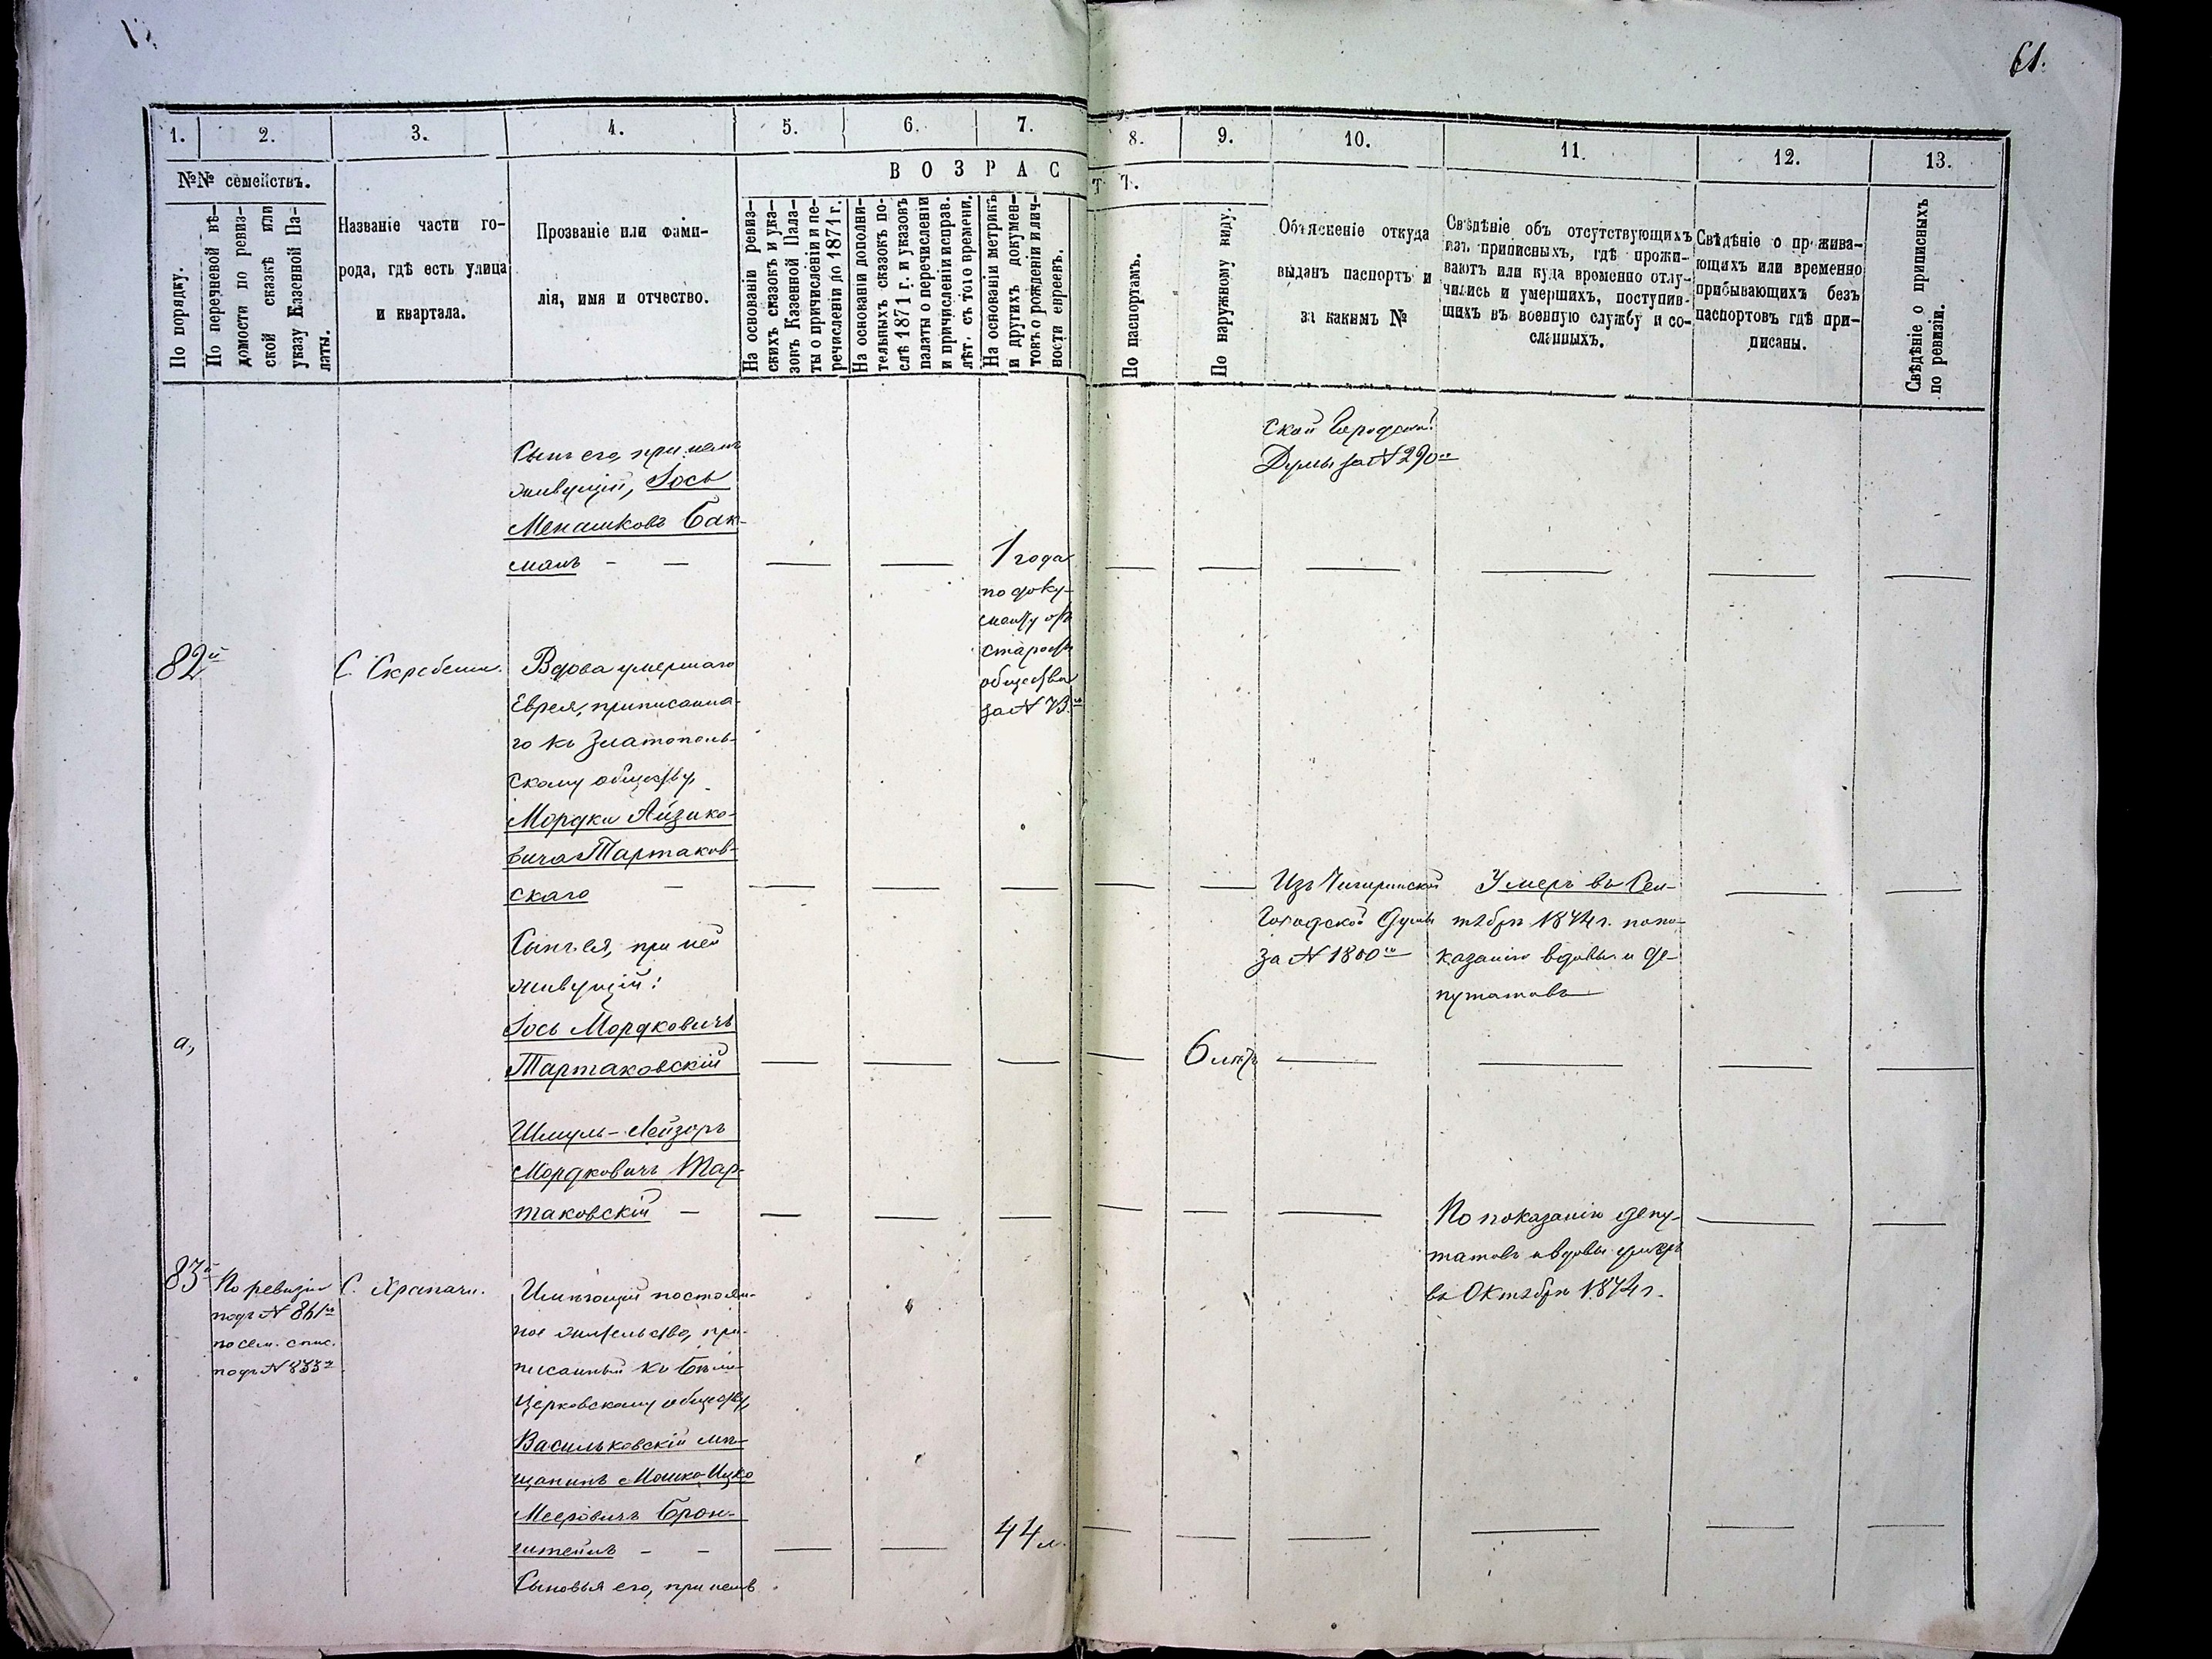 61.
1. 2. 3. 4. 5. 6. 7. 8. 9. 10. 11. 12. 13.
№№ семействъ.
В О З Р А С Т Ъ.
По порядку.
По перечневой вѣ-
домости по ревиз-
ской сказкѣ или
указу Казенной Па-
латы.
Названіе части го-
рода, гдѣ есть улица
и квартала.
Прозваніе или фами-
лія, имя и отчество.
На основаніи ревиз-
скихъ сказокъ и ука-
зовъ Казенной Пала-
ты о причисленіи и пе-
речисленіи до 1871 г.
На основаніи дополни-
тельныхъ сказокъ по-
слѣ 1871 г. и указовъ
палаты о перечисленіи
и причисленіи исправ.
лѣт. съ того времени.
На основаніи метрикъ
и другихъ докумен-
товъ о рожденіи и лич-
ности евреевъ.
По паспортамъ.
По наружному виду.
Объясненіе откуда
выданъ паспортъ и
за какимъ №
Свѣдѣніе объ отсутствующихъ
изъ приписныхъ, гдѣ прожи-
ваютъ или куда временно отлу-
чились и умершихъ, поступив-
шихъ въ военную службу и со-
сланныхъ.
Свѣдѣніе о прожива-
ющихъ или временно
прибывающихъ безъ
паспортовъ гдѣ при-
писаны.
Свѣдѣніе о приписныхъ
по ревизіи.
Сынъ его, при немъ
живущій, Іось
Менашковъ Бак-
манъ - —
1 года
по доку-
менту отъ
старосты
общества
за № 73.
ской Городской
Думы за № 290
82й
С. Скребеши.
Вдова умершаго
Еврея, приписанна-
го къ Златополь-
скому обществу,
Мордки Айзико-
вича Тартаков-
скаго —
Изъ Чигиринской
Городской Думы
за № 1800
Умеръ въ Сен-
тябрѣ 1874 г. по по-
казанію вдовы и де-
путатовъ
Сынъ ея, при ней
живущій:
а,
Іось Мордковичъ
Тартаковскій
6 лѣтъ
Шмуль-Лейзоръ
Мордковичъ Тар-
таковскій —
По показанію депу-
татовъ и вдовы умеръ
въ Октябрѣ 1874 г.
83й
По ревизіи
подъ № 861
по сем. спис.
подъ № 833
С. Храпачи.
Имѣющій постоян-
ное жительство, при-
писанный къ Бѣло-
церковскому обществу,
Васильковскій мѣ-
щанинъ Мошко-Ицко
Мееровичъ Брон-
штейнъ - -
44 л.
Сыновья его, при немъ